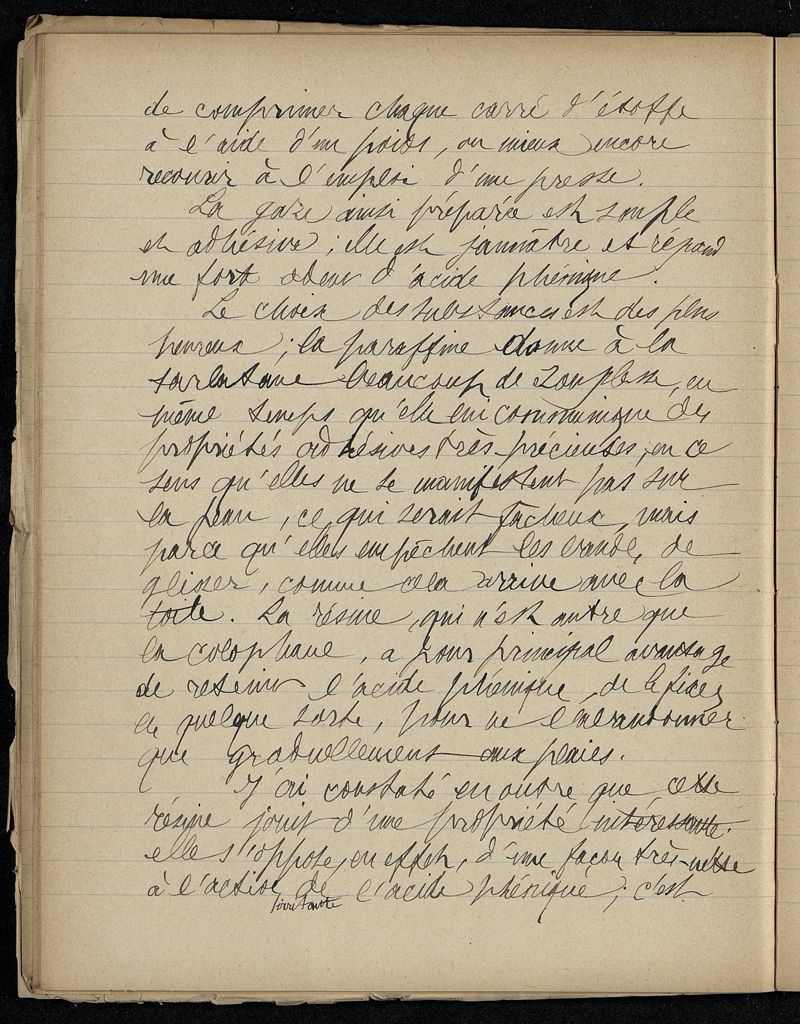 de comprimer chaque carré d'étoffe
à l'aide d'un poids, ou mieux encore
recourir à l'emploi d'une presse.
La gaze ainsi préparée est souple
et adhésive ; elle est jaunâtre et répand
une forte odeur d'acide phénique.
Le choix des substances est des plus
heureux ; la paraffine donne à la
tarlatane beaucoup de souplesse, en
même temps qu'elle lui communique des
propriétés adhésives très-précieuses, en ce
sens qu'elles ne se manifestent pas sur
la peau, ce qui serait fâcheux, mais
parce qu'elles empêchent les bandes de
glisser, comme cela arrive avec la
toile. La résine, qui n'est autre que
la colophane, a pour principal avantage
de retenir l'acide phénique, de le fixer
en quelque sorte, pour ne l'abandonner
que graduellement aux plaies.
J'ai constaté en outre que cette
résine jouit d'une propriété intéressante.
elle s'oppose, en effet, d'une façon très-nette
à l'action de l'acide phénique ; c'est
irritante